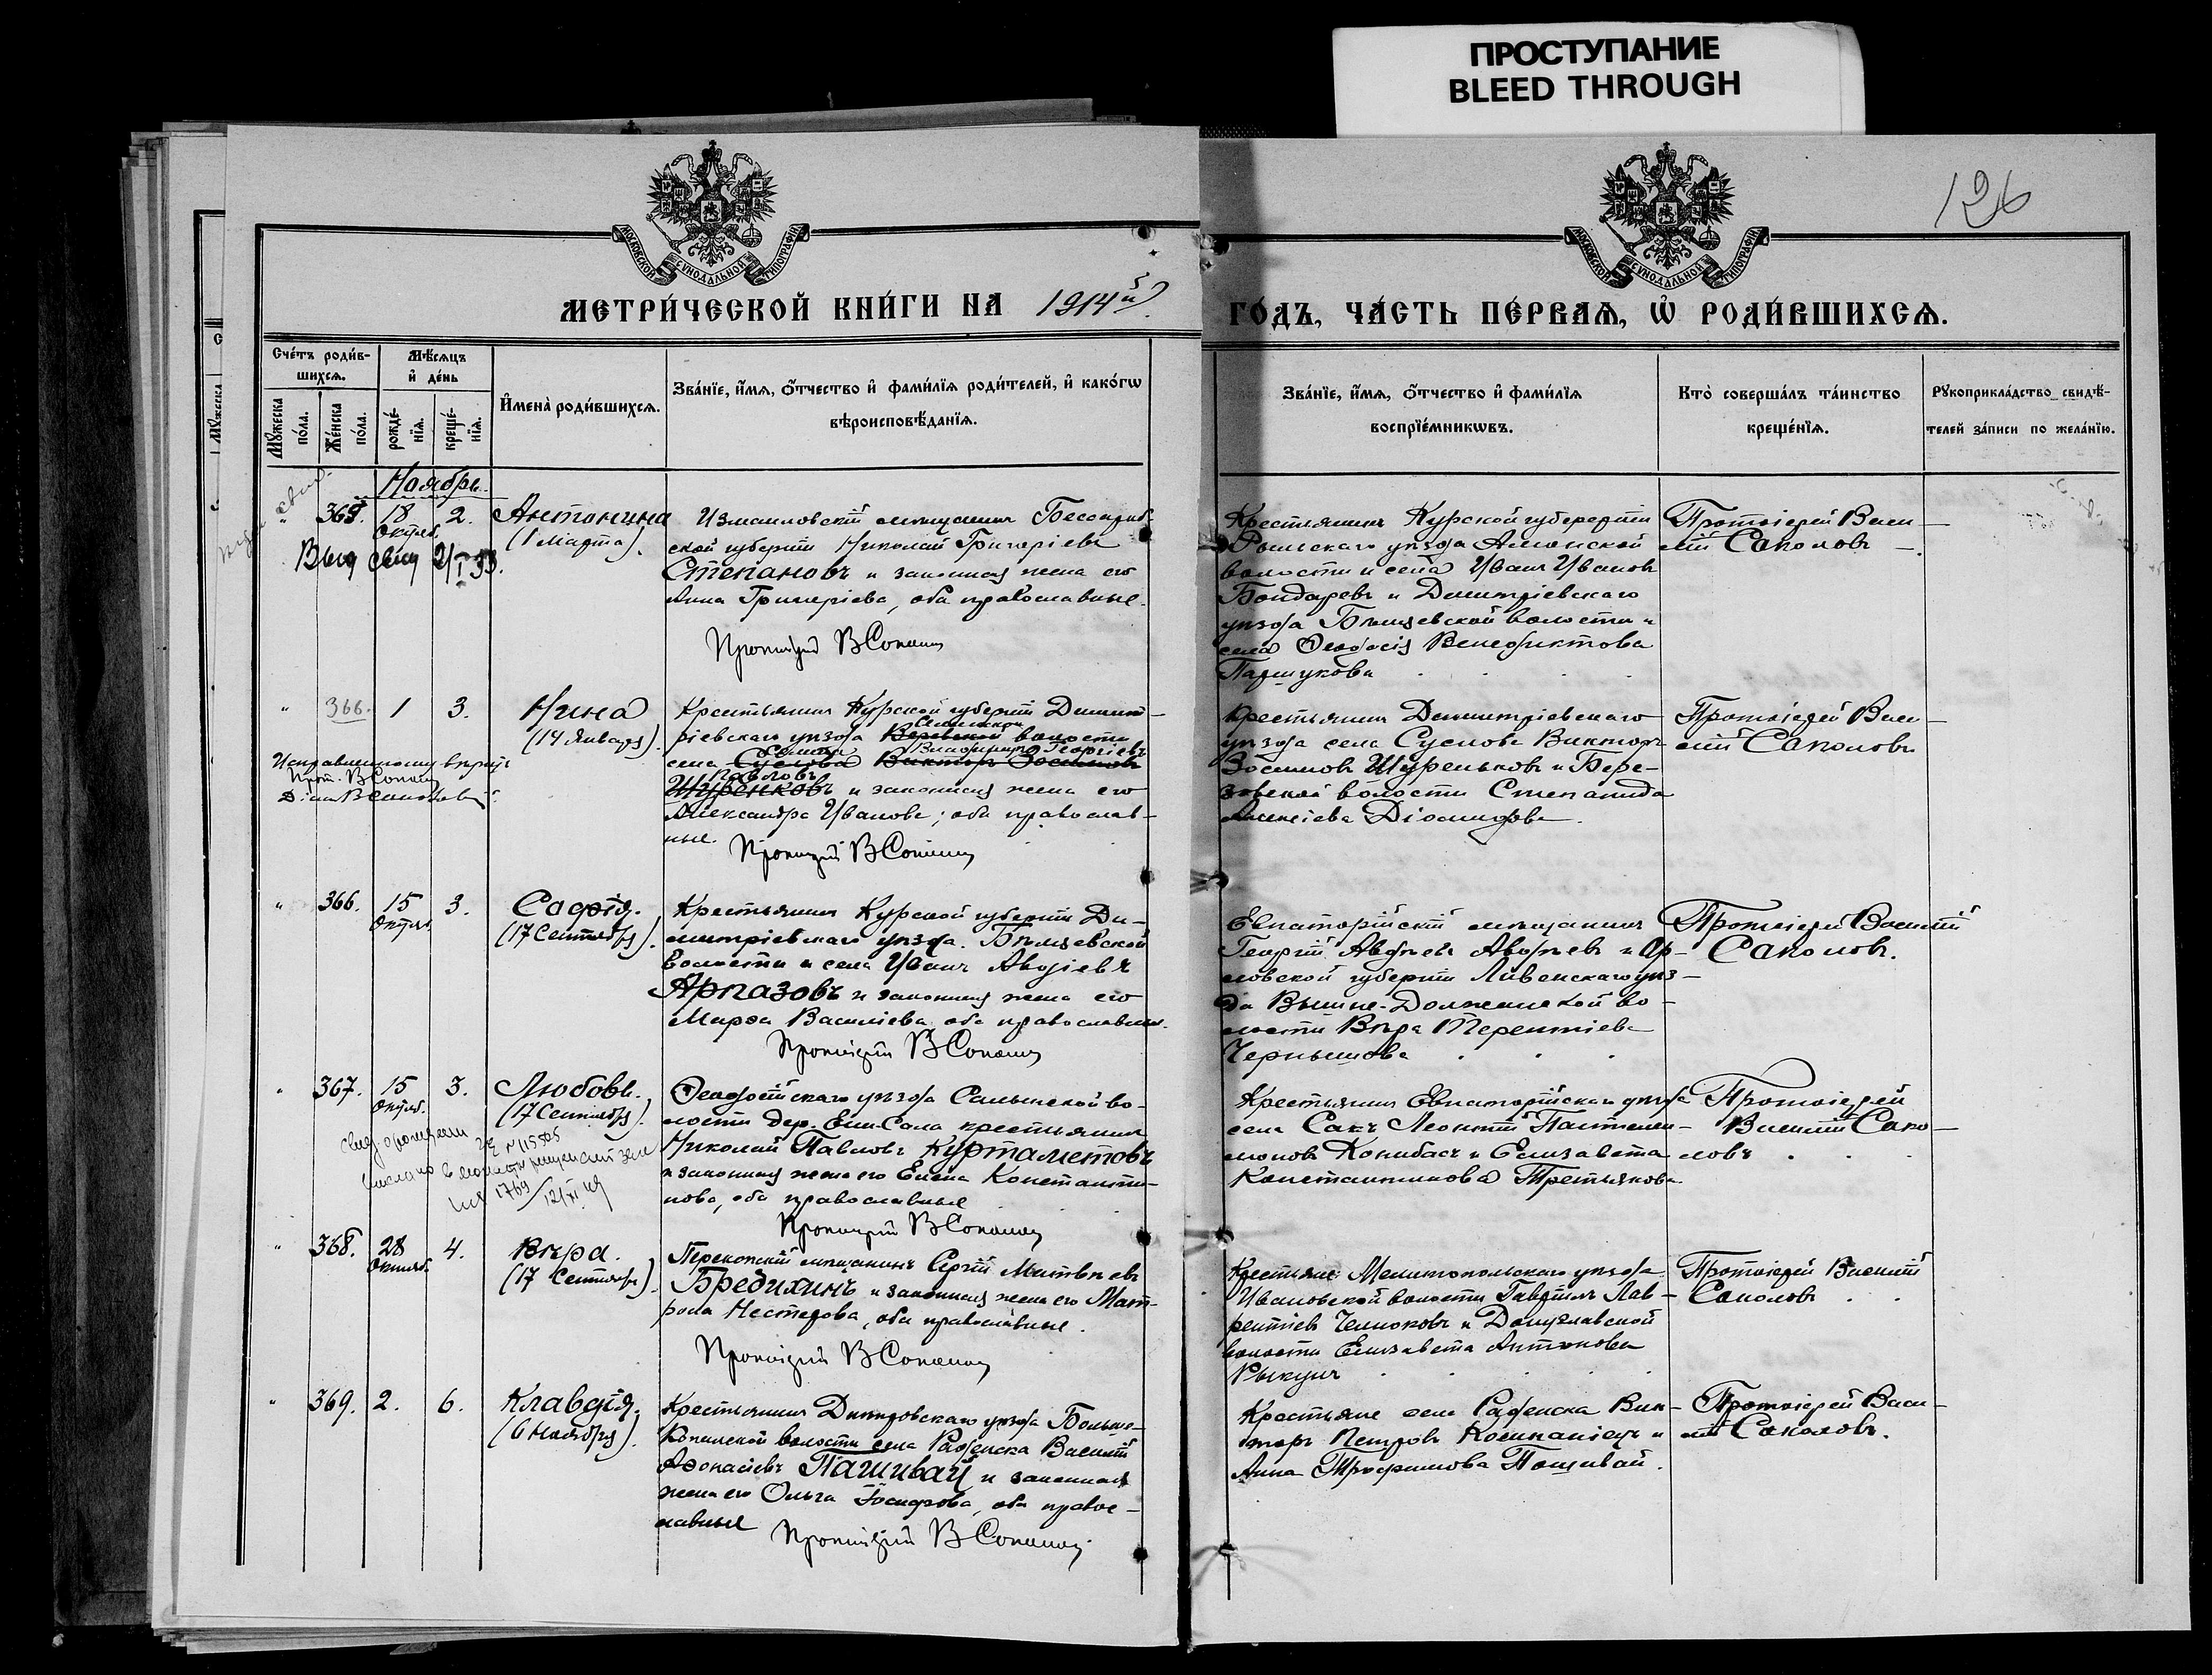 ПРОСТУПАНИЕ
BLEED THROUGH
126
МОСКОВСКОЙ СУНОДАЛЬНОЙ ТИПОГРАФИИ
МОСКОВСКОЙ СУНОДАЛЬНОЙ ТИПОГРАФИИ
МЕТРИ́ЧЕСКОЙ КНИ́ГИ НА 1914й
ГО́ДЪ, ЧА́СТЬ ПЕ́РВАѦ, Ѡ҆ РОДИ́ВШИХСѦ.
Сче́тъ роди́в-
шихсѧ.
Мѣ́сѧцъ
и҆ де́нь
Мꙋ́жеска по́ла.
Же́нска по́ла.
рожде́-
нїѧ.
креще́-
нїѧ.
И҆мена̀ роди́вшихсѧ.
Зва́нїе, и҆́мѧ, ѻ҆́тчество и҆ фами́лїѧ роди́телей, и҆ како́гѡ
вѣроисповѣ́данїѧ.
Зва́нїе, и҆́мѧ, ѻ҆́тчество и҆ фами́лїѧ
воспрїе́мникѡвъ.
Кто̀ соверша́лъ та́инство
креще́нїѧ.
Рꙋкоприкла́дство свидѣ́-
телей за́писи по жела́нїю.
Ноябрь.
" 365. 18 Октяб. 2. Антонина
(1 Марта).
Измаиловскій мѣщанинъ Бессараб-
ской губерніи Николай Григоріевъ
Степановъ и законная жена его
Анна Григоріева, оба православные.
Протоіерей В Соколов
Крестьянинъ Курской губерніи
Рыльскаго уѣзда
волости и села Иванъ Ивановъ
Бондаревъ и Димитріевскаго
уѣзда волости и
села Ѳеодосія Венедиктова
Паршукова
Протоіерей Васи-
лій Соколовъ
" 366. 1 3. Нина
(14 Января).
Крестьянинъ Курской губерніи Димит-
ріевскаго уѣзда волости
села Суслова Викторъ Зосимовъ
Павловъ
Шуренковъ и законная жена его
Александра Иванова; оба православ-
ные.
Протоіерей В Соколов
Исправленному вѣрить
Прот. В Соколов
Крестьянинъ Димитріевскаго
уѣзда села Суслова Викторъ
Зосимовъ Шуреньковъ и Бере-
зовской волости Степанида
Алексіева Діомидова.
Протоіерей Васи-
лій Соколовъ
" 366. 15 Октяб. 3. Софія.
(17 Сентября).
Крестьянинъ Курской губерніи Ди-
митріевскаго уѣзда
волости и села Иванъ
Арпазовъ и законная жена его
Марѳа Василіева оба православные.
Протоіерей В Соколов
Евпаторійскій мѣщанинъ
Георгій Авдѣевъ и Ор-
ловской губерніи Ливенскаго уѣз-
да Вышне-Долженской во-
лости Вѣра Терентіева
Чернышова
Протоіерей Василій
Соколовъ.
" 367. 15 Октяб. 3. Любовь.
(17 Сентября).
Ѳеодосійскаго уѣзда Салынской во-
лости дер. Ени-Сала крестьянинъ
Николай Павловъ Куртаметовъ
и законная жена его Елена Константи-
нова, оба православные
Протоіерей В Соколов
Крестьянинъ Евпаторійскаго уѣзда
села Сакъ Леонтій Пантелеи-
моновъ Колибасъ и Елизавета
Константинова Третьякова
Протоіерей
Василій Соко-
ловъ
" 368. 28 Октяб. 4. Вѣра.
(17 Сентября).
Перекопскій мѣщанинъ Сергій Матвѣевъ
Бредихинъ и законная жена его Мат-
рона Нестерова, оба православные.
Протоіерей В Соколов
Крестьяне: Мелитопольскаго уѣзда
Ивановской волости Гавріилъ Лав-
рентіевъ Челноковъ и Донузлавской
волости Елизавета Антонова
Рыкунъ
Протоіерей Василій
Соколовъ
" 369. 2. 6. Клавдія.
(6 Ноября).
Крестьянинъ Днѣпровскаго уѣзда Больше-
Копанской волости села Раденска Василій
Аѳонасіевъ Пашивай и законная
жена его Ольга Іосифова, оба право-
славные
Протоіерей В Соколов
Крестьяне села Раденска Вик-
торъ Петровъ Компаніецъ и
Анна Трофимова Пошивай.
Протоіерей Васи-
лій Соколовъ.